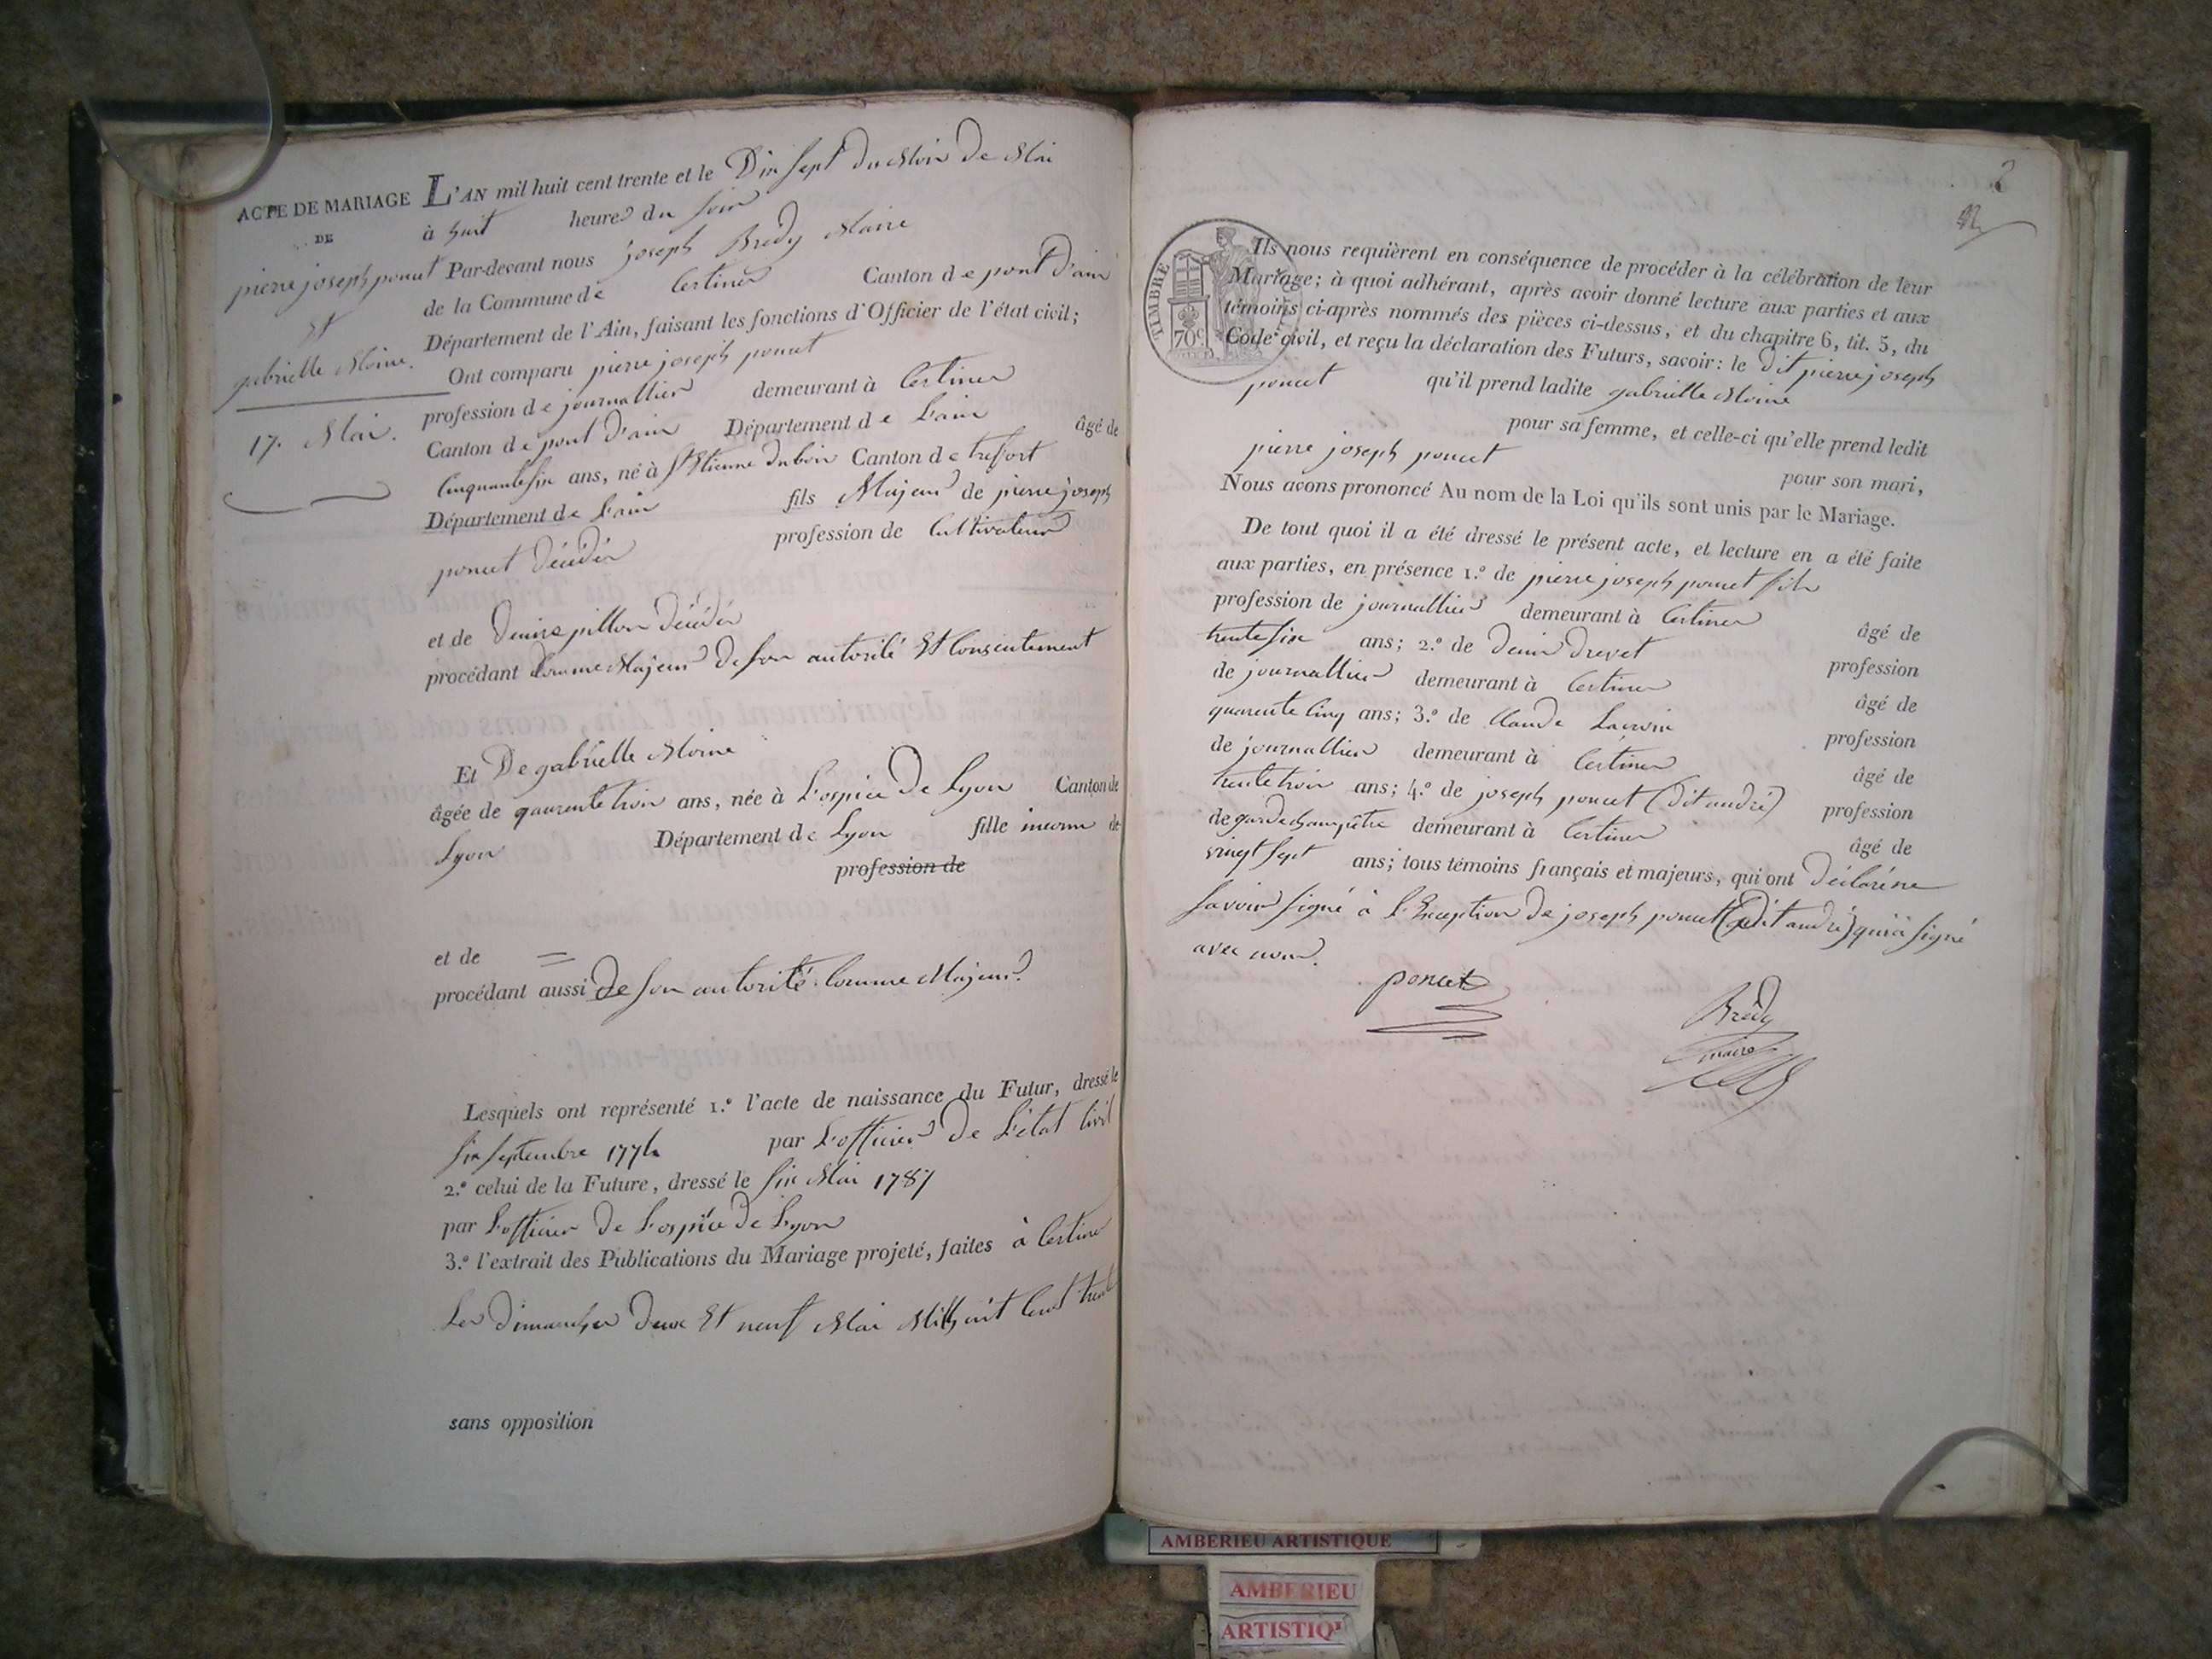 ACTE DE MARIAGE
DE
pierre joseph poncet
Et
gabrielle Moine.
17. Mai.
L'AN mil huit cent trente et le Dix sept du Mois de Mai
à huit heures du soir
Par-devant nous joseph Bredy Maire
de la Commune de Certines Canton de pont d'ain
Département de l'Ain, faisant les fonctions d'Officier de l'état civil;
Ont comparu pierre joseph poncet
profession de journallier demeurant à Certines
Canton de pont d'ain Département de L'ain âgé de
Cinquante six ans, né à St Etienne dubois Canton de treffort
Département de L'ain fils Majeur de pierre joseph
poncet décédés profession de Cultivateur
et de Denise pillon décédés
procédant Comme Majeur De son autorité Et Consentement
Et De gabrielle Moine
âgée de quarente trois ans, née à L'ospice De Lyon Canton de
Lyon Département de Lyon fille inconnu de
profession de
et de =
procédant aussi De son autorité Comme Majeur.
Lesquels ont représenté 1.º l'acte de naissance du Futur, dressé le
six septembre 1774 par L'officier De L'état Civil
2.º celui de la Future, dressé le six Mai 1787
par L'officier De L'ospice De Lyon
3.º l'extrait des Publications du Mariage projeté, faites à Certines
Les Dimanches Deux Et neuf Mai Mil huit Cent trente
sans opposition
2
TIMBRE
70c
Ils nous requièrent en conséquence de procéder à la célébration de leur
Mariage; à quoi adhérant, après avoir donné lecture aux parties et aux
témoins ci-après nommés des pièces ci-dessus, et du chapitre 6, tit. 5, du
Code civil, et reçu la déclaration des Futurs, savoir: le dit pierre joseph
poncet qu'il prend ladite gabrielle Moine
pour sa femme, et celle-ci qu'elle prend ledit
pierre joseph poncet pour son mari,
Nous avons prononcé Au nom de la Loi qu'ils sont unis par le Mariage.
De tout quoi il a été dressé le présent acte, et lecture en a été faite
aux parties, en présence 1.º de pierre joseph poncet fils
profession de journallier demeurant à Certines âgé de
trente six ans; 2.º de Denis Drevet profession
de journallier demeurant à Certines âgé de
quarente Cinq ans; 3.º de Claude Lacroix profession
de journallier demeurant à Certines âgé de
trente trois ans; 4.º de joseph poncet (dit andré) profession
de garde champêtre demeurant à Certines âgé de
vingt sept ans; tous témoins français et majeurs, qui ont déclaré ne
savoir signé à L'Exception De joseph poncet (dit andré) qui a signé
avec nous.
poncet
Bredy
maire
AMBERIEU ARTISTIQUE
AMBERIEU
ARTISTIQ